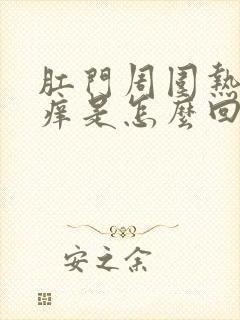 肛門周圍熱
痒是怎麼回
安之余